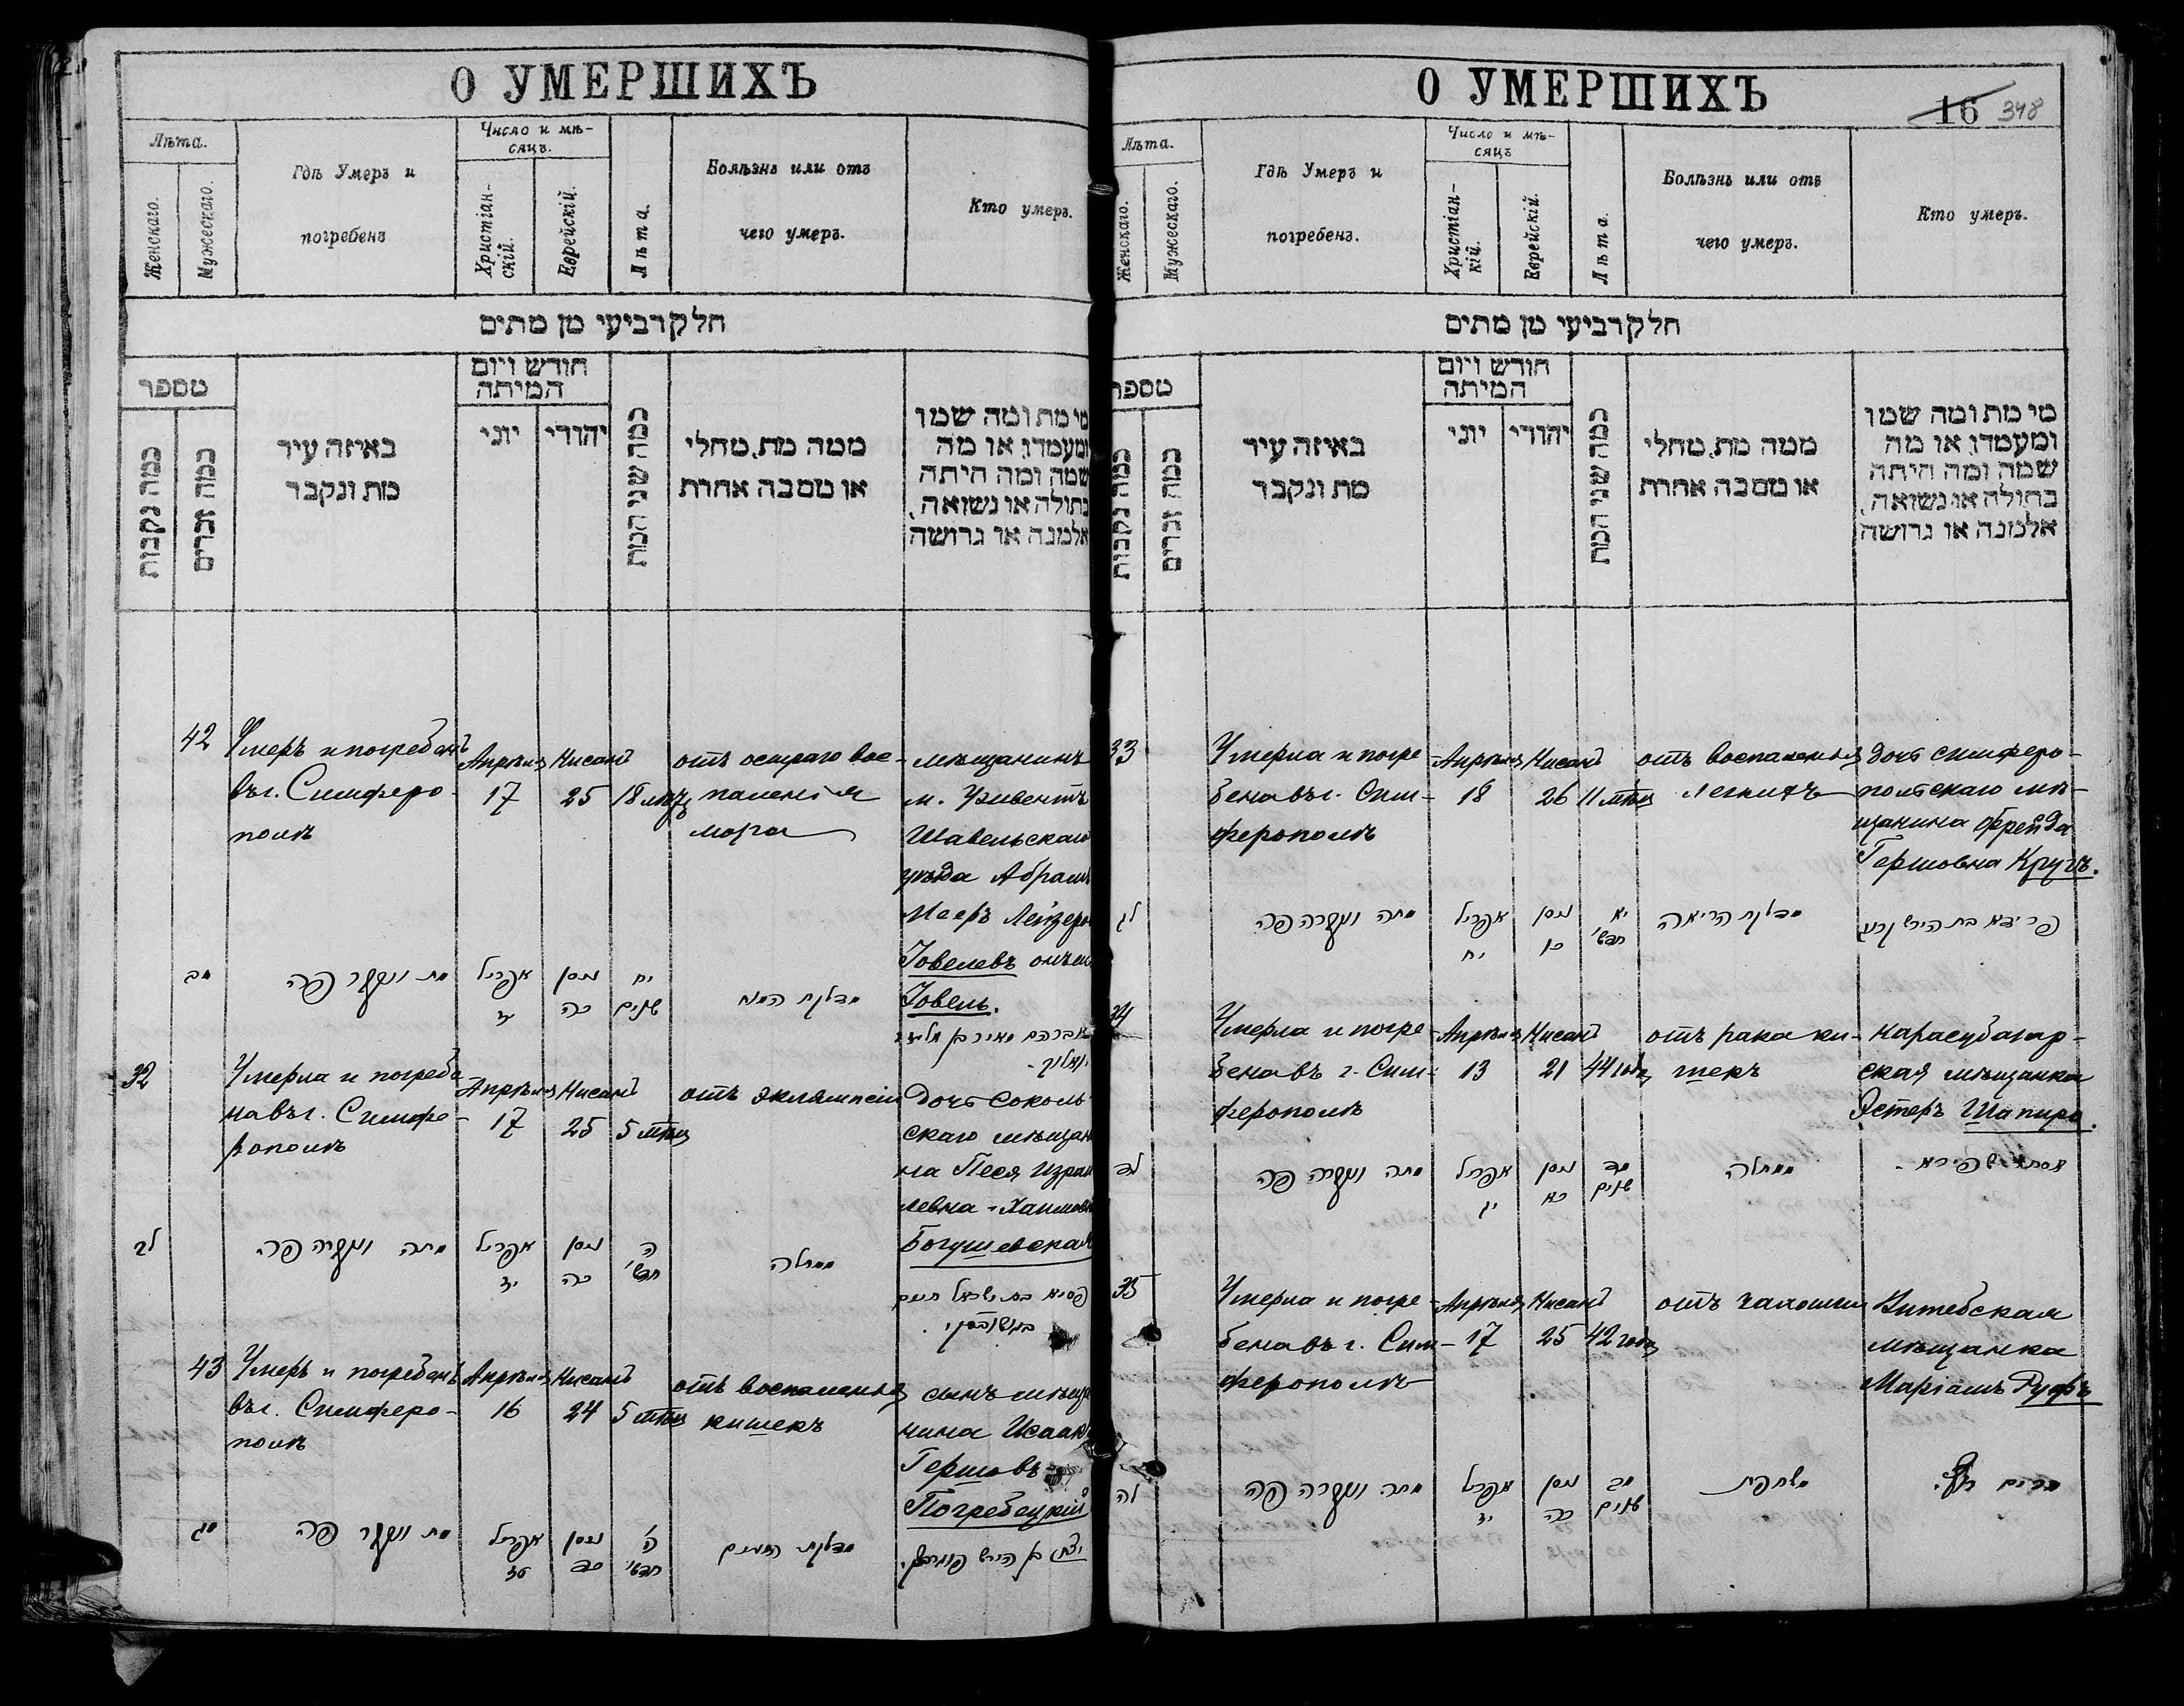 О УМЕРШИХЪ
Лѣта.
Женскаго.
Мужескаго.
Гдѣ Умеръ и
погребенъ
Число и мѣ-
сяцъ.
Христіан-
скій.
Еврейскій.
Лѣта.
Болѣзнь или отъ
чего умеръ.
Кто умеръ.
חלק רביעי מן מתים
מספר
כמה נקבות
כמה זכרים
באיזה עיר
מת ונקבר
חודש ויום
המיתה
יוני
יהודי
כמה שני המת
ממה מת, מחלי
או מסבה אחרת
מי מת ומה שמו
ומעמדו, או מה
שמה ומה היתה
בתולה או נשואה,
אלמנה או גרושה
42
Умеръ и погребенъ
въ г. Симферо-
полѣ
Апрѣля
17
Нисанъ
25
18 лѣтъ
отъ остраго вос-
паленія
мозга
мѣщанинъ
м. Ужвентъ
Шавельскаго
уѣзда Абрамъ
Мееръ Лейзеро
Іовелевъ онъ же
Іовель.
מב
מת ונקבר פה
אפריל
יז
ניסן
כה
יח
שנים
מדלקת המוח
אברהם מאיר בן אליעזר
32
Умерла и погребе
на въ г. Симфе-
рополѣ
Апрѣля
17
Нисанъ
25
5 мѣц
отъ эклямпсіи
Дочь соколь-
скаго мѣщани
на Песя Изра
левна-Хаимовн
Богушевская
לב
מתה ונקברה פה
אפריל
יז
ניסן
כה
ה
חדשי
ממחלה
פסיא בת ישראל חיים
43
Умеръ и погребенъ
въ г. Симферо-
полѣ
Апрѣля
16
Нисанъ
24
5 мѣц
отъ воспаленія
кишекъ
сынъ мѣща
нина Исаакъ
Гершовъ
Погребецкій
מג
מת ונקבר פה
אפריל
טז
ניסן
כד
ה'
חדשי
מדלקת המעים
יצחק בן הירש
О УМЕРШИХЪ
16 348
Лѣта.
Женскаго.
Мужескаго.
Гдѣ Умеръ и
погребенъ.
Число и мѣ-
сяцъ
Христіан-
кій.
Еврейскій.
Лѣта.
Болѣзнь или отъ
чего умеръ.
Кто умеръ.
חלק רביעי מן מתים
מספר
כמה נקבות
כמה זכרים
באיזה עיר
מת ונקבר
חודש ויום
המיתה
יוני
יהודי
כמה שני המת
ממה מת, מחלי
או מסבה אחרת
מי מת ומה שמו
ומעמדו, או מה
שמה ומה היתה
בתולה או נשואה,
אלמנה או גרושה
33
Умерла и погре-
бена въ г. Сим-
ферополѣ
Апрѣля
18
Нисанъ
26
11 мѣц
отъ воспаленія
легкихъ
дочь симферо-
польскаго мѣ-
щанина Фрейда
Гершовна Кругъ.
לג
מתה ונקברה פה
אפריל
יח
ניסן
כו
יא
חדשי
מדלקת הריאה
פריידא בת הירש
34
Умерла и погре-
бена въ г. Сим-
ферополѣ
Апрѣля
13
Нисанъ
21
44 года
отъ рака ки-
шекъ
карасубазар-
ская мѣщанка
Эстеръ Шапиро.
לד
מתה ונקברה פה
אפריל
יג
ניסן
כא
מד
שנים
ממחלה
אסתר שפירא
35
Умерла и погре-
бена въ г. Сим-
ферополѣ
Апрѣля
17
Нисанъ
25
42 года
отъ чахотки
Витебская
мѣщанка
Маріамъ Руфъ
לה
מתה ונקברה פה
אפריל
יז
ניסן
כה
מב
שנים
משחפת
מרים